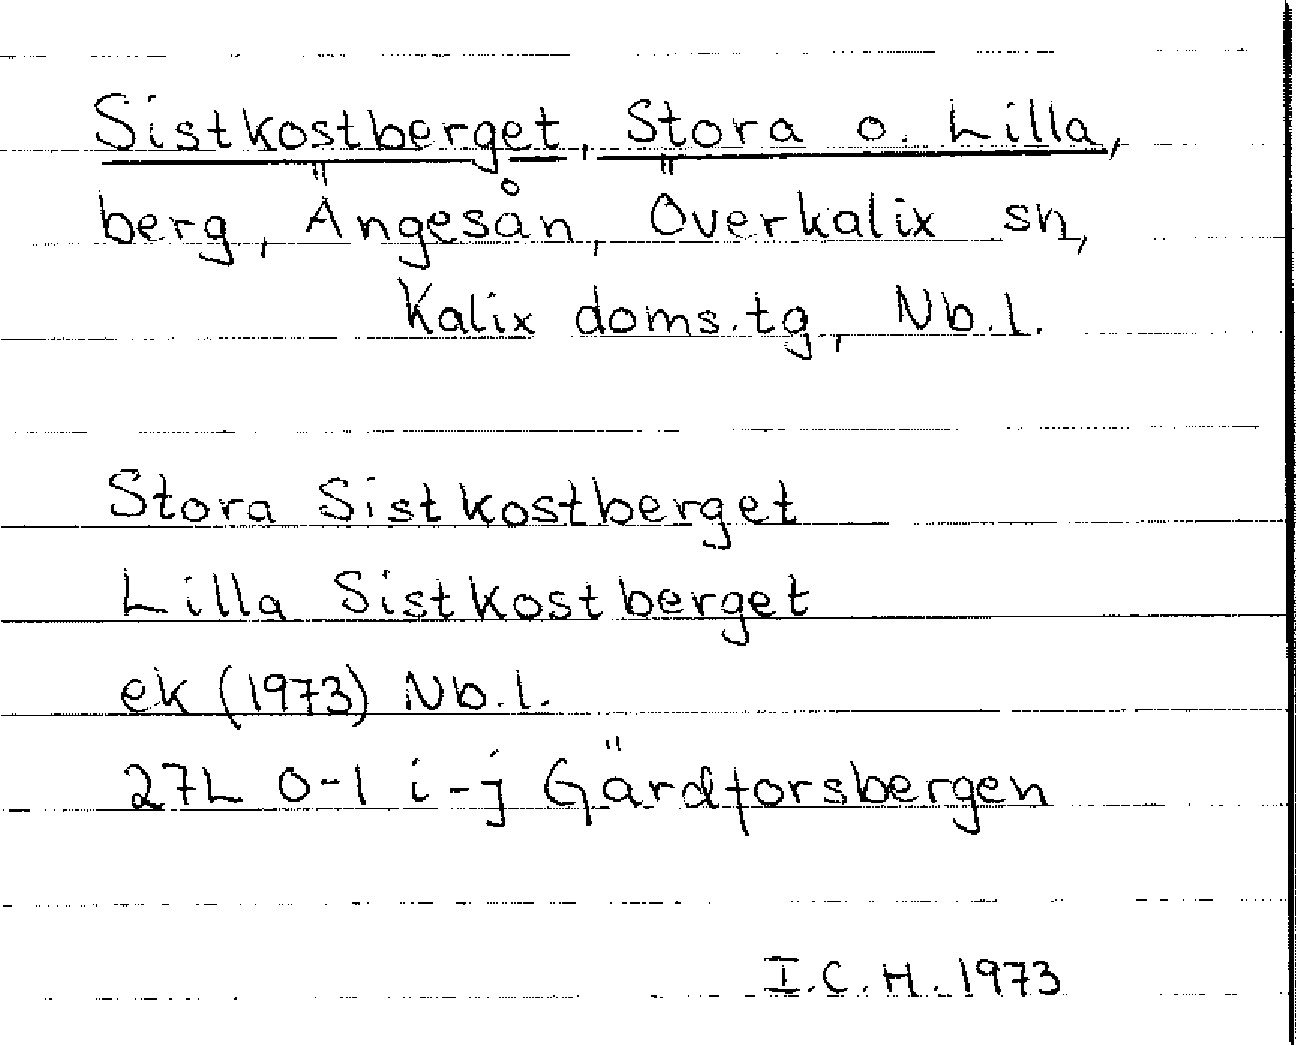 Sistkostberget, Stora o. Lilla,
berg, Ängesån, Överkalix sn,
Kalix doms.tg, Nb.l.
Stora Sistkostberget
Lilla Sistkostberget
ek (1973) Nb.l.
27L 0-1 i-j Gärdforsbergen
I.C.H. 1973